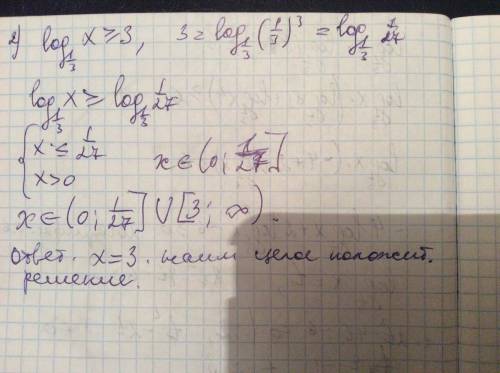 2) log_{1/3} x ≥ 3, 3 = log_{1/3} (1/3)^3 = log_{1/3} 1/27
log_{1/3} x ≥ log_{1/3} 1/27
{ x ≤ 1/27
x > 0 x ∈ (0; 1/27]
x ∈ (0; 1/27] ∪ [3; ∞).
ответ. x = 3. наим целое положит.
решение.